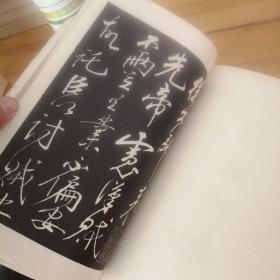 先帝慮漢賊
不兩立王業不偏安
故託臣以討賊也